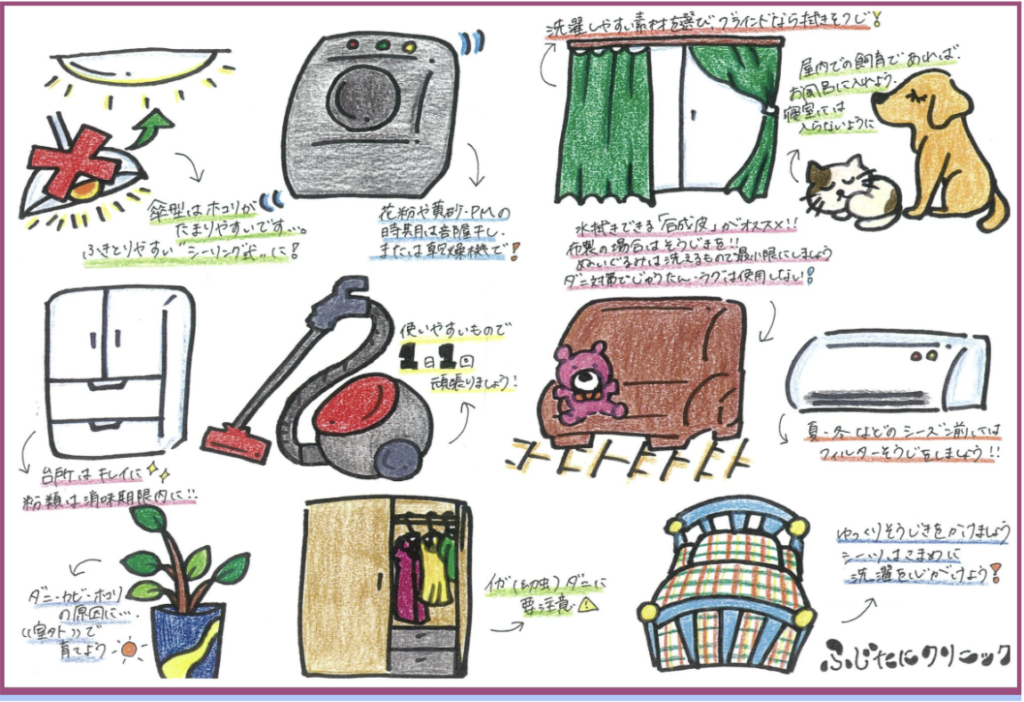 洗濯しやすい素材を選び ブラインドなら拭きそうじ!
屋内での飼育であれば、
お風呂に入れよう。
寝室には
入らないように
傘型はホコリが
たまりやすいです…。
ふきとりやすい"シーリング式"に!
花粉や黄砂・PMの
時期は部屋干し、
または乾燥機で!
水拭きできる「合成皮」がオススメ!!
布製の場合はそうじきを!!
ぬいぐるみは洗えるもので最小限にしましょう
ダニ対策でじゅうたん・ラグは使用しない!
使いやすいもので
1日1回
頑張りましょう!
夏・冬などのシーズン前には
フィルターそうじをしましょう!!
台所はキレイに
粉類は消味期限内に!!
ダニ・カビ・ホコリ
の原因に…。
《室外》で
育てよう
イガ(幼虫)ダニに
要注意
ゆっくりそうじきをかけましょう
シーツはこまめに
洗濯を心がけよう!
ふじたにクリニック